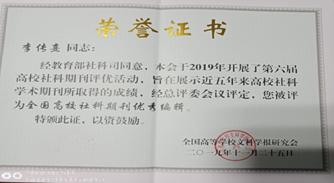 荣誉证书
李传熹 同志：
经教育部社科司同意，本会于2019年开展了第六届
高校社科期刊评优活动，旨在展示近五年来高校社科
学术期刊所取得的成绩，经总评委会议评定，您被评
为全国高校社科期刊优秀编辑。
特颁此证，以资鼓励。
全国高等学校文科学报研究会
二〇一九年十一月二十五日